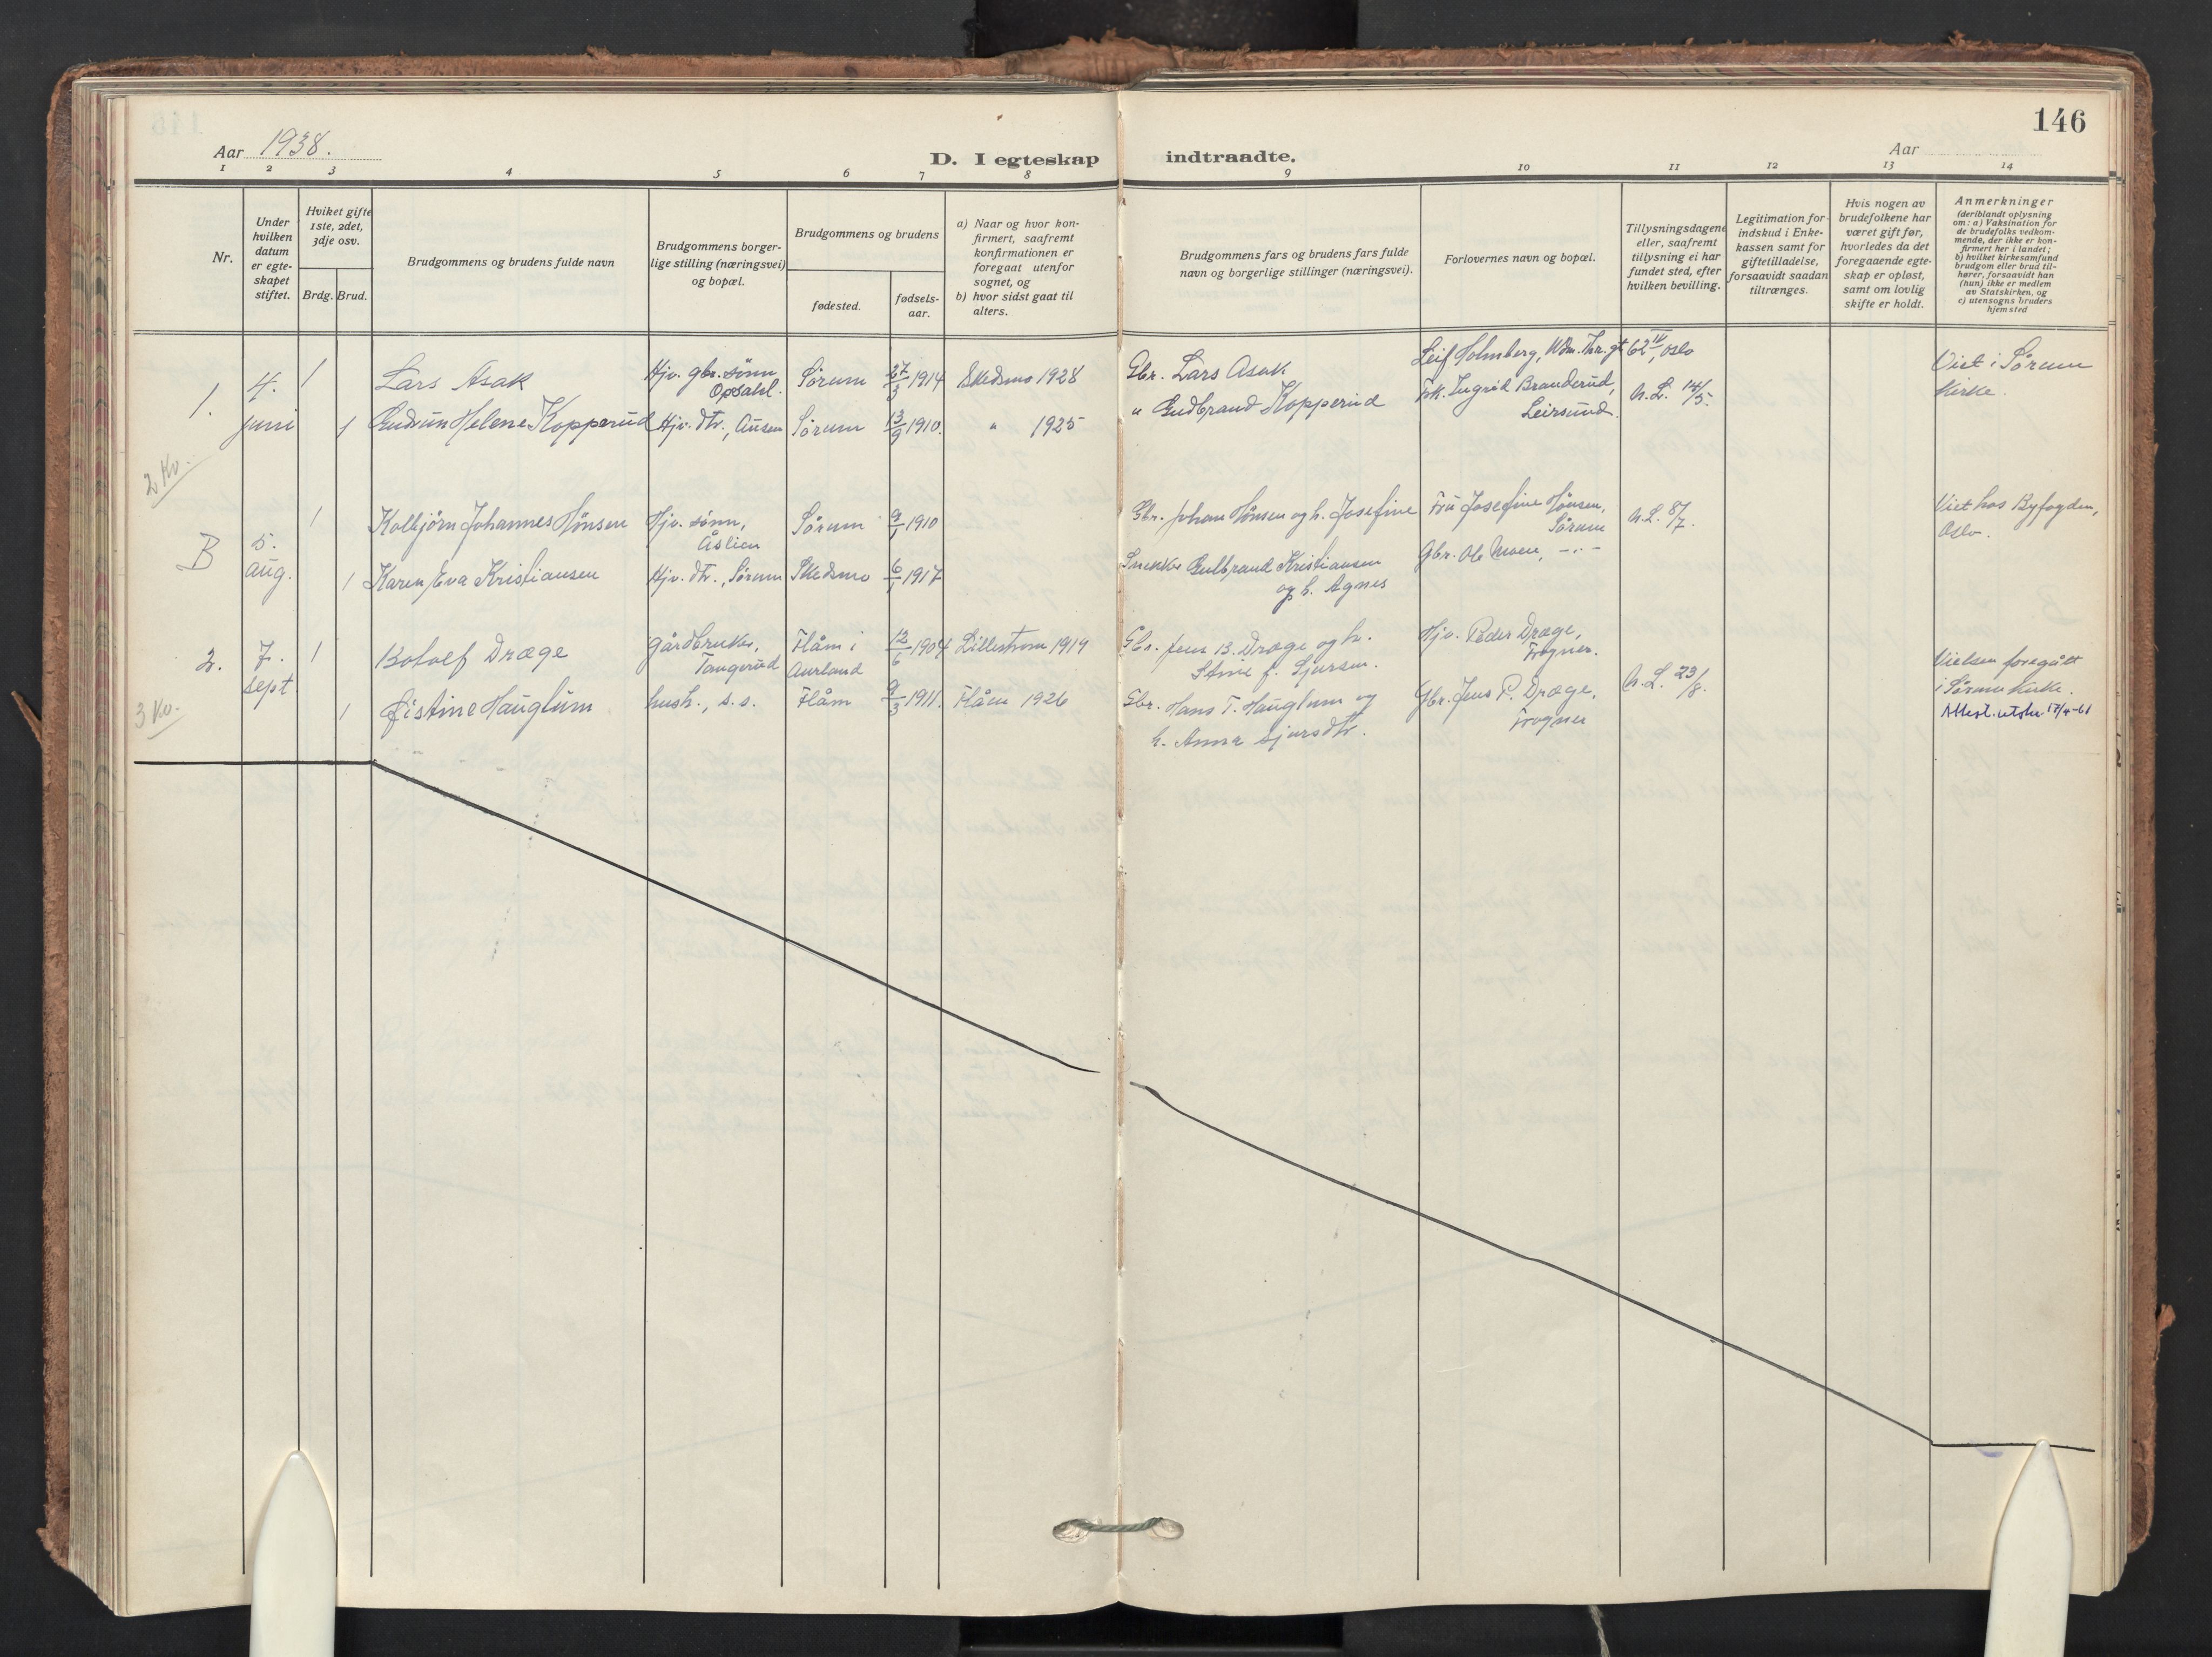 146
Aar 1938.
D. I egteskap indtraadte.
Aar
1 2 3 4 5 6 7 8 9 10 11 12 13 14
Nr.
Under
hvilken
datum
er egte-
skapet
stiftet.
Hvilket gifte
1ste, 2det,
3dje osv.
Brdg. Brud.
Brudgommens og brudens fulde navn
Brudgommens borger-
lige stilling (næringsvei)
og bopæl.
Brudgommens og brudens
fødested.
fødsels-
aar.
a) Naar og hvor kon-
firmert, saafremt
konfirmationen er
foregaat utenfor
sognet, og
b) hvor sidst gaat til
alters.
Brudgommens fars og brudens fars fulde
navn og borgerlige stillinger (næringsvei).
Forlovernes navn og bopæl.
Tillysningsdagene
eller, saafremt
tillysning ei har
fundet sted, efter
hvilken bevilling.
Legitimation for
indskud i Enke-
kassen samt for
giftetilladelse,
forsaavidt saadan
tiltrænges.
Hvis nogen av
brudefolkene har
været gift før,
hvorledes da det
foregaaende egte-
skap er opløst,
samt om lovlig
skifte er holdt.
Anmerkninger
(deriblandt oplysning
om: a) Vaksination for
de brudefolks vedkom-
mende, der ikke er kon-
firmert her i landet;
b) hvilket kirkesamfund
brudgom eller brud til-
hører, forsaavidt han
(hun) ikke er medlem
av Statskirken, og
c) utensogns bruders
hjemsted
1.
4.
juni
1
Lars Asak
Hjv. gbr. sønn
Opsahl.
Sørum
27/3 1914
Skedsmo 1928
Gbr. Lars Asak
Leif Holmberg, Wm. Thr. gt 62 IV, Oslo
Viet i Sørum
kirke.
1
Gudrun Helene Kopperud
Hjv. dtr., Ausen
Sørum
13/9 1910.
" 1925
" Gudbrand Kopperud
Frk. Ingrid Branderud,
Leirsund.
N.L. 14/5.
2 Kv.
B
5.
aug.
1
Kolbjørn Johannes Hønsen
Hjv. sønn,
Åslien
Sørum
9/1 1910
Gbr. Johan Hønsen og h. Josefine
Fru Josefine Hønsen,
Sørum
N.L. 8/7.
Viet hos Byfogden,
Oslo.
1
Karen Eva Kristiansen
Hjv. dtr., Sørum
Skedsmo
6/1 1917
Snekker Gulbrand Kristiansen
og h. Agnes
Gbr. Ole Moen, -"-
2.
7.
sept
1
Botolf Dræge
gårdbruker,
Tangerud
Flåm i
Aurland
12/6 1904
Lillestrøm 1919
Gbr. Jens B. Dræge og h.
Stine f. Sjursen.
Hjv. Peder Dræge,
Frogner.
N.L. 23/8.
Vielsen foregått
i Sørum kirke.
Attest. utstr. 17/4-61
3 Kv.
1
Østine Hauglum
hush., s.s.
Flåm
9/3 1911.
Flåm 1926
Gbr. Hans T. Hauglum og
h. Anna Sjursdtr.
Gbr. Jens P. Dræge,
Frogner